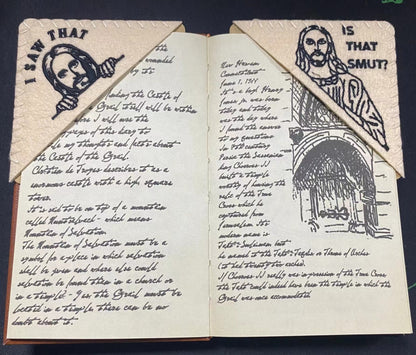 I SAW THAT
IS
THAT
SMUT?
the
wounded
to
the Castle of
Grail itself will be within
I will use the
pages of this diary to
my thoughts and facts about
the Castle of the Grail.
Chrétien de Troyes describes it as a
enormous castle with a high, square
tower.
It is said to be on top of a mountain
called Montsalvach - which means
Mountain of Salvation.
The Mountain of Salvation must be a
symbol for a place in which salvation
shall be given and where else could
salvation be found than in a church or
in a temple? - Yes, the Grail must be
located in a temple, there can be no
doubt about it.
New Haven
Connecticut
June 1, 19
It's a kept Henry
Jones Jr. was born
today and today
was the day where
I found the answer
to my questions
In 7th century
Persia the Sassanian
king Chosroes II
built a temple
worthy of having the
relic of the True
Cross which he
captured from
Jerusalem. Its
modern name is
Takt-i-Suleiman but
he named it the Takt-i-Taqdis or Throne of Arches
(it had twenty-two arches).
If Chosroes II really was in possession of the True Cross
the Takt could indeed have been the temple in which the
Grail was once accommodated.